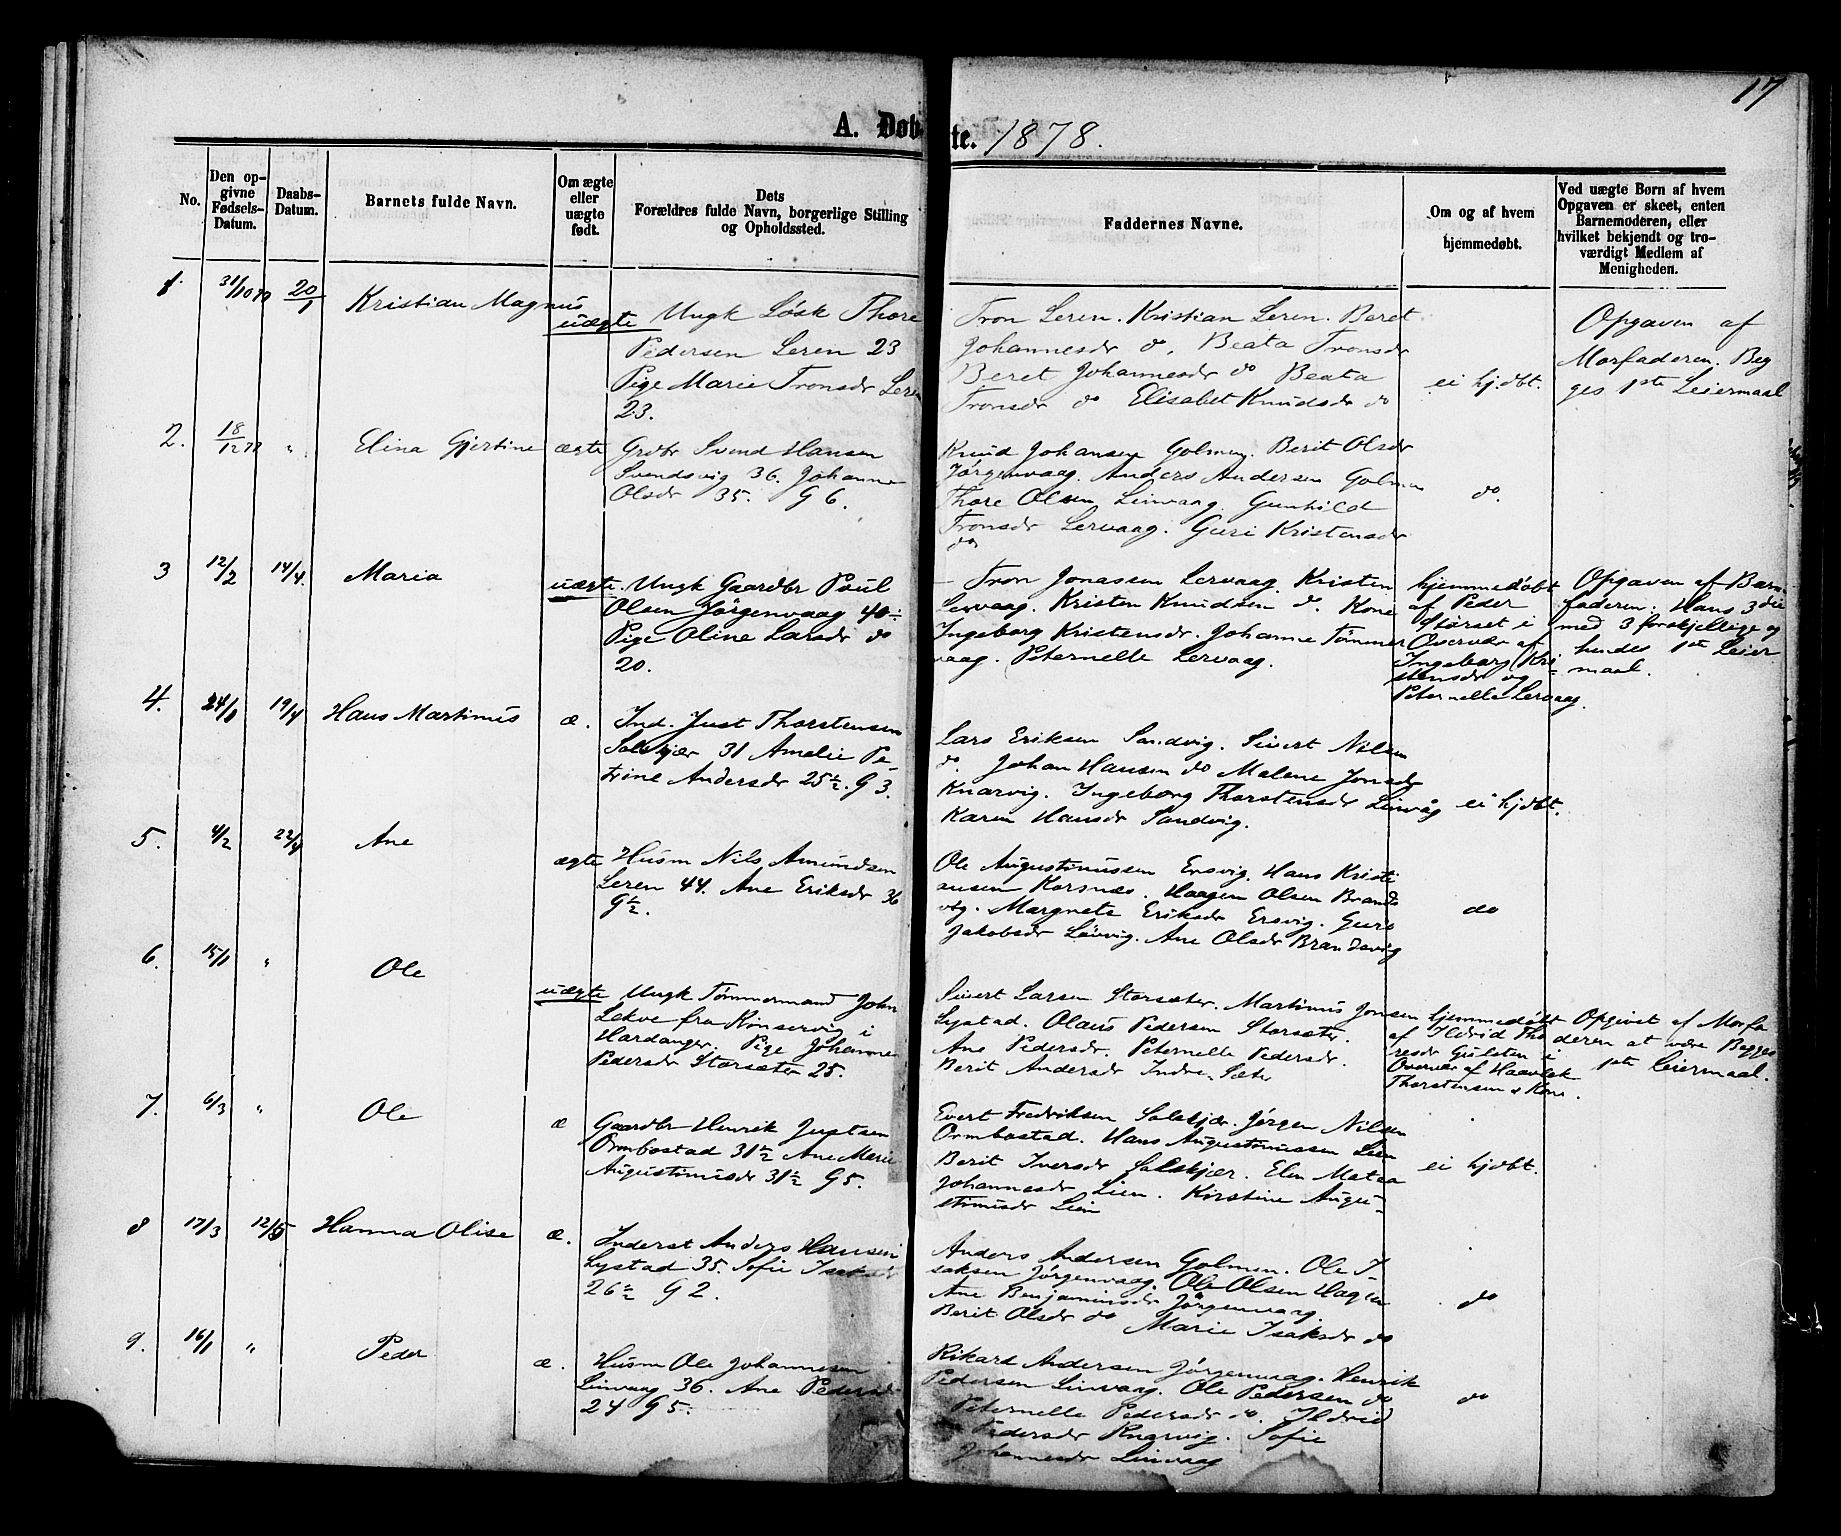 17
A. Døbte. 1878.
No.
Den op-
givne
Fødsels-
Datum.
Daabs-
Datum.
Barnets fulde Navn.
Om ægte
eller
uægte
født.
Dets
Forældres fulde Navn, borgerlige Stilling
og Opholdssted.
Faddernes Navne.
Om og af hvem
hjemmedøbt.
Ved uægte Børn af hvem
Opgaven er skeet, enten
Barnemoderen, eller
hvilket bekjendt og tro-
værdigt Medlem af
Menigheden.
1. 31/10 77 20/1 Kristian Magnus
uægte Ungk Løsk Thore
Pedersen Leren 23
Pige Marie Tronsdr Leren
23.
Tron Leren. Kristian Leren. Beret
Johannesdr do. Beata Tronsdr
Beret Johannesdr do Beata
Tronsdr do Elisabet Knudsdr do
ei hjdbt.
Opgaven af
Morfaderen. Beg
ges 1ste Leiermaal
2. 18/12 77 " Elina Gjertine ægte Grdbr Svend Hansen
Svendsvig 36. Johanne
Olsdr 35. G 6.
Knud Johansen Golmen. Berit Olsdr
Jørgenvaag. Anders Andersen Golmen
Thore Olsen Linvaag Gunhild
Tronsdr Lervaag. Guri Kristensdr
do
do.
3 12/2 14/4. Maria uægte. Ungk Gaardbr Poul
Olsen Jørgenvaag 40 ÷
Pige Oline Larsdr do
20.
– Tron Jonassen Lervaag. Kristen
Lervaag. Kristen Knudsen do. Kone
Ingeborg Kristensdr. Johanne Tømmer
vaag. Peternelle Lervaag.
hjemmedøbt
af Peder
Størset i
Overvær af
Ingeborg Kri-
stensdr og
Peternelle Lervaag.
Opgaven af Barn-
faderen. Hans 3die
med 3 forskjellige og
hendes 1ste Leier
maal.
4. 24/1 19/4 Hans Martinus æ. Ind. Just Thorstensen
Solskjær 31 Amelie Pe-
trine Andersdr 25 ½. G 3.
Lars Eriksen Sandvig. Sivert Nilsen
do. Johan Hansen do Malene Jonsdr
Knarvig. Ingeborg Thorstensdr Linvåg
Karen Hansdr Sandvig.
ei hjdbt.
5. 4/2 22/4 Ane ægte Husm Nils Amundsen
Leren 44. Ane Eriksdr 36
G ½.
Ole Augustinussen Ersvig. Hans Kristi
ansen Korsnæs. Haagen Olsen Brands
vig. Margrete Eriksdr Ersvig. Guri
Jakobsdr Løvvig. Ane Olsdr Brandsvig
do
6. 15/1 " Ole
uægte Ungk Tømmermand John
Lekve fra Kinservig i
Hardanger. Pige Johanne
Pedersdr Storsæter 25.
Sivert Larsen Storsæter. Martinus Jonsen
Lystad. Olaus Pedersen Storsæter.
Ane Pedersdr. Peternelle Pedersdr.
Berit Andersdr Indre-Sæter
hjemmedøbt
af Ildrid Tho
resdr Gulsten i
Overvær af Haavæk
Thorstensen & Kone.
Opgivet af Morfa
deren at være Begges
1ste Leiermaal.
7. 6/3 " Ole æ Gaardbr Henrik Justsen
Ormbostad 31 ½ Ane Marie
Augustinusdr 31 ½ G 5.
Evert Fredriksen Solskjær. Jørgen Nilsen
Ormbostad. Hans Augustinussen Lien
Berit Iversdr Solskjær. Elen Matea
Johannesdr Lien. Kirstine Augu-
stinusdr Lien
ei hjdbt.
8 17/3 12/5 Hanna Olise æ. Inderst Anders Hansen
Lystad 35. Sofie Isaksdr
26 ½ G 2.
Anders Andersen Golmen. Ole I-
saksen Jørgenvaag. Ole Olsen Hagen
Ane Benjaminsdr Jørgenvaag.
Berit Olsdr do Marie Isaksdr do
do
9. 16/1 " Peder æ. Husm Ole Johannesen
Linvaag 36. Ane Pedersdr
24 G 5.
Rikard Andersen Jørgenvaag. Henrik
Pedersen Linvaag. Ole Pedersen do
Peternelle Pedersdr do. Ildrid
Pedersdr Knarvig. Sofie
Johannesdr Linvaag
do